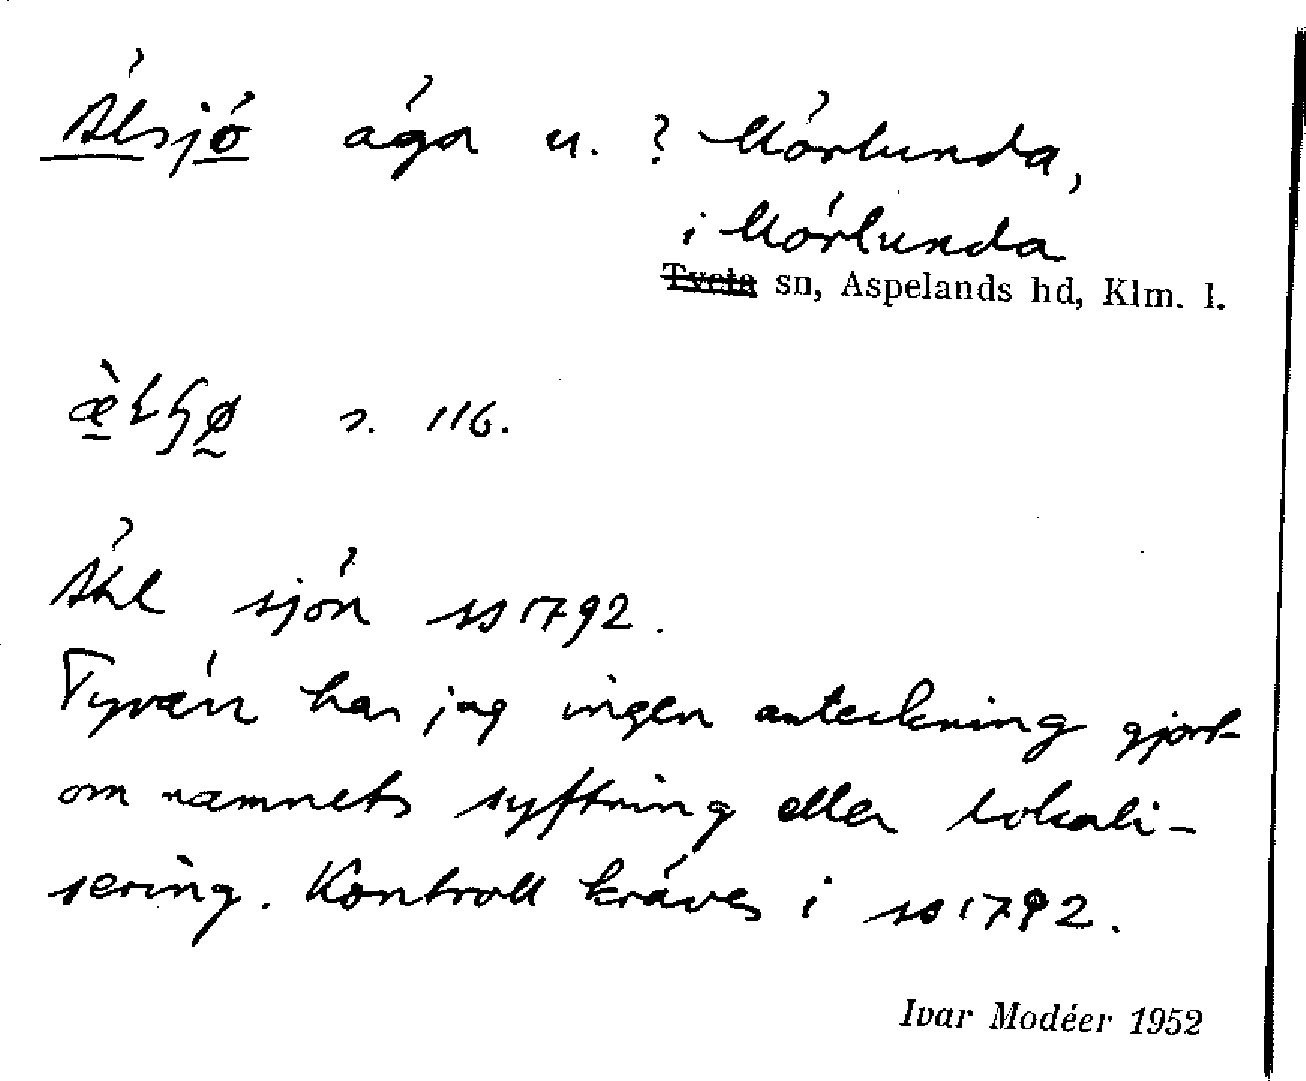 Älsjö äga u. ? Mörlunda,
i Mörlunda
Tveta sn, Aspelands hd, Klm. l.
s. 116.
Ähl sjön ss 1792.
Tyvärr har jag ingen anteckning gjort
om namnets syftning eller lokali-
sering. Kontroll kräves i ss 1792.
Ivar Modéer 1952